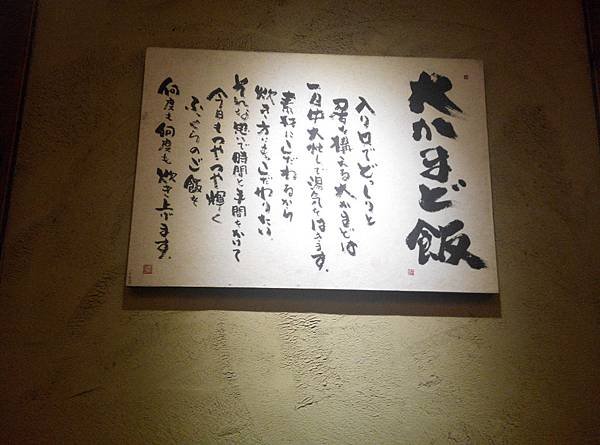 大かまど飯
入り口でどしっと
君を構える大かまどは
一日中大忙しで湯気をはきます。
素材にこだわるから
炊き方にもこだわりたい。
そんな思いで時間と手間をかけて
今日もつやつや輝く
ふっくらのご飯を
何度も何度も炊き上げます。